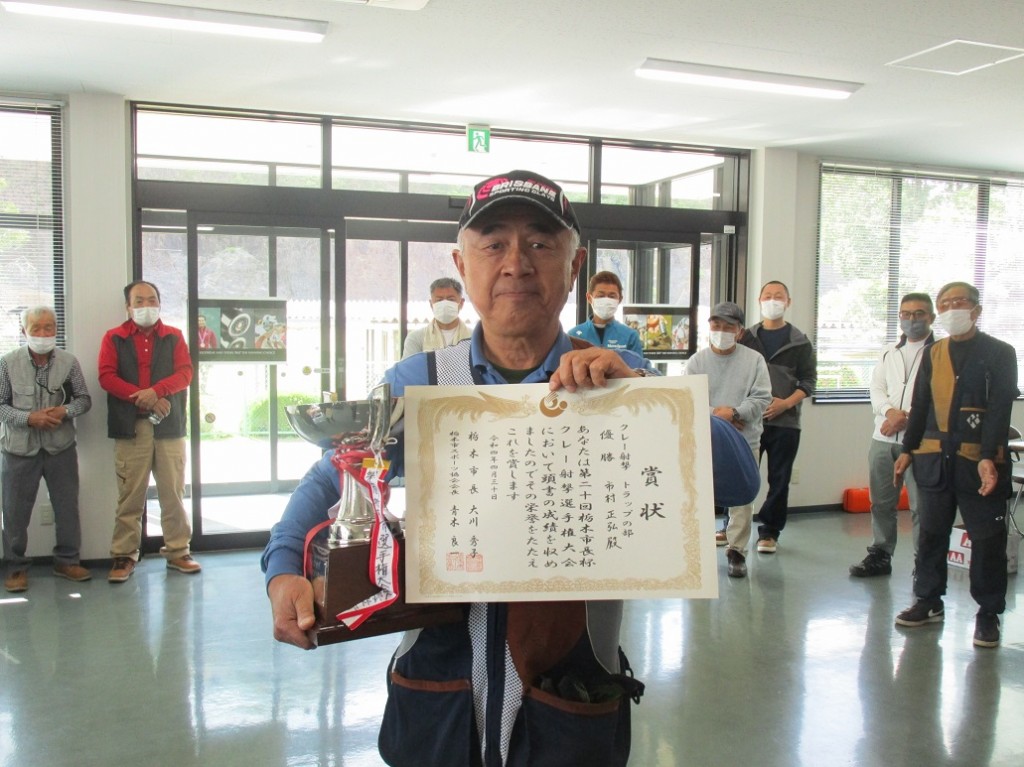 BRISBANE
SPORTING CLAYS
賞状
クレー射撃 トラップの部
優勝 市村 正弘 殿
あなたは第二十回栃木市長杯
クレー射撃選手権大会
において頭書の成績を収め
ましたのでその栄誉をたたえ
これを賞します
令和四年四月三十日
栃木市長 大川 秀子
栃木市スポーツ協会会長 青木 良一
選手権大
AA